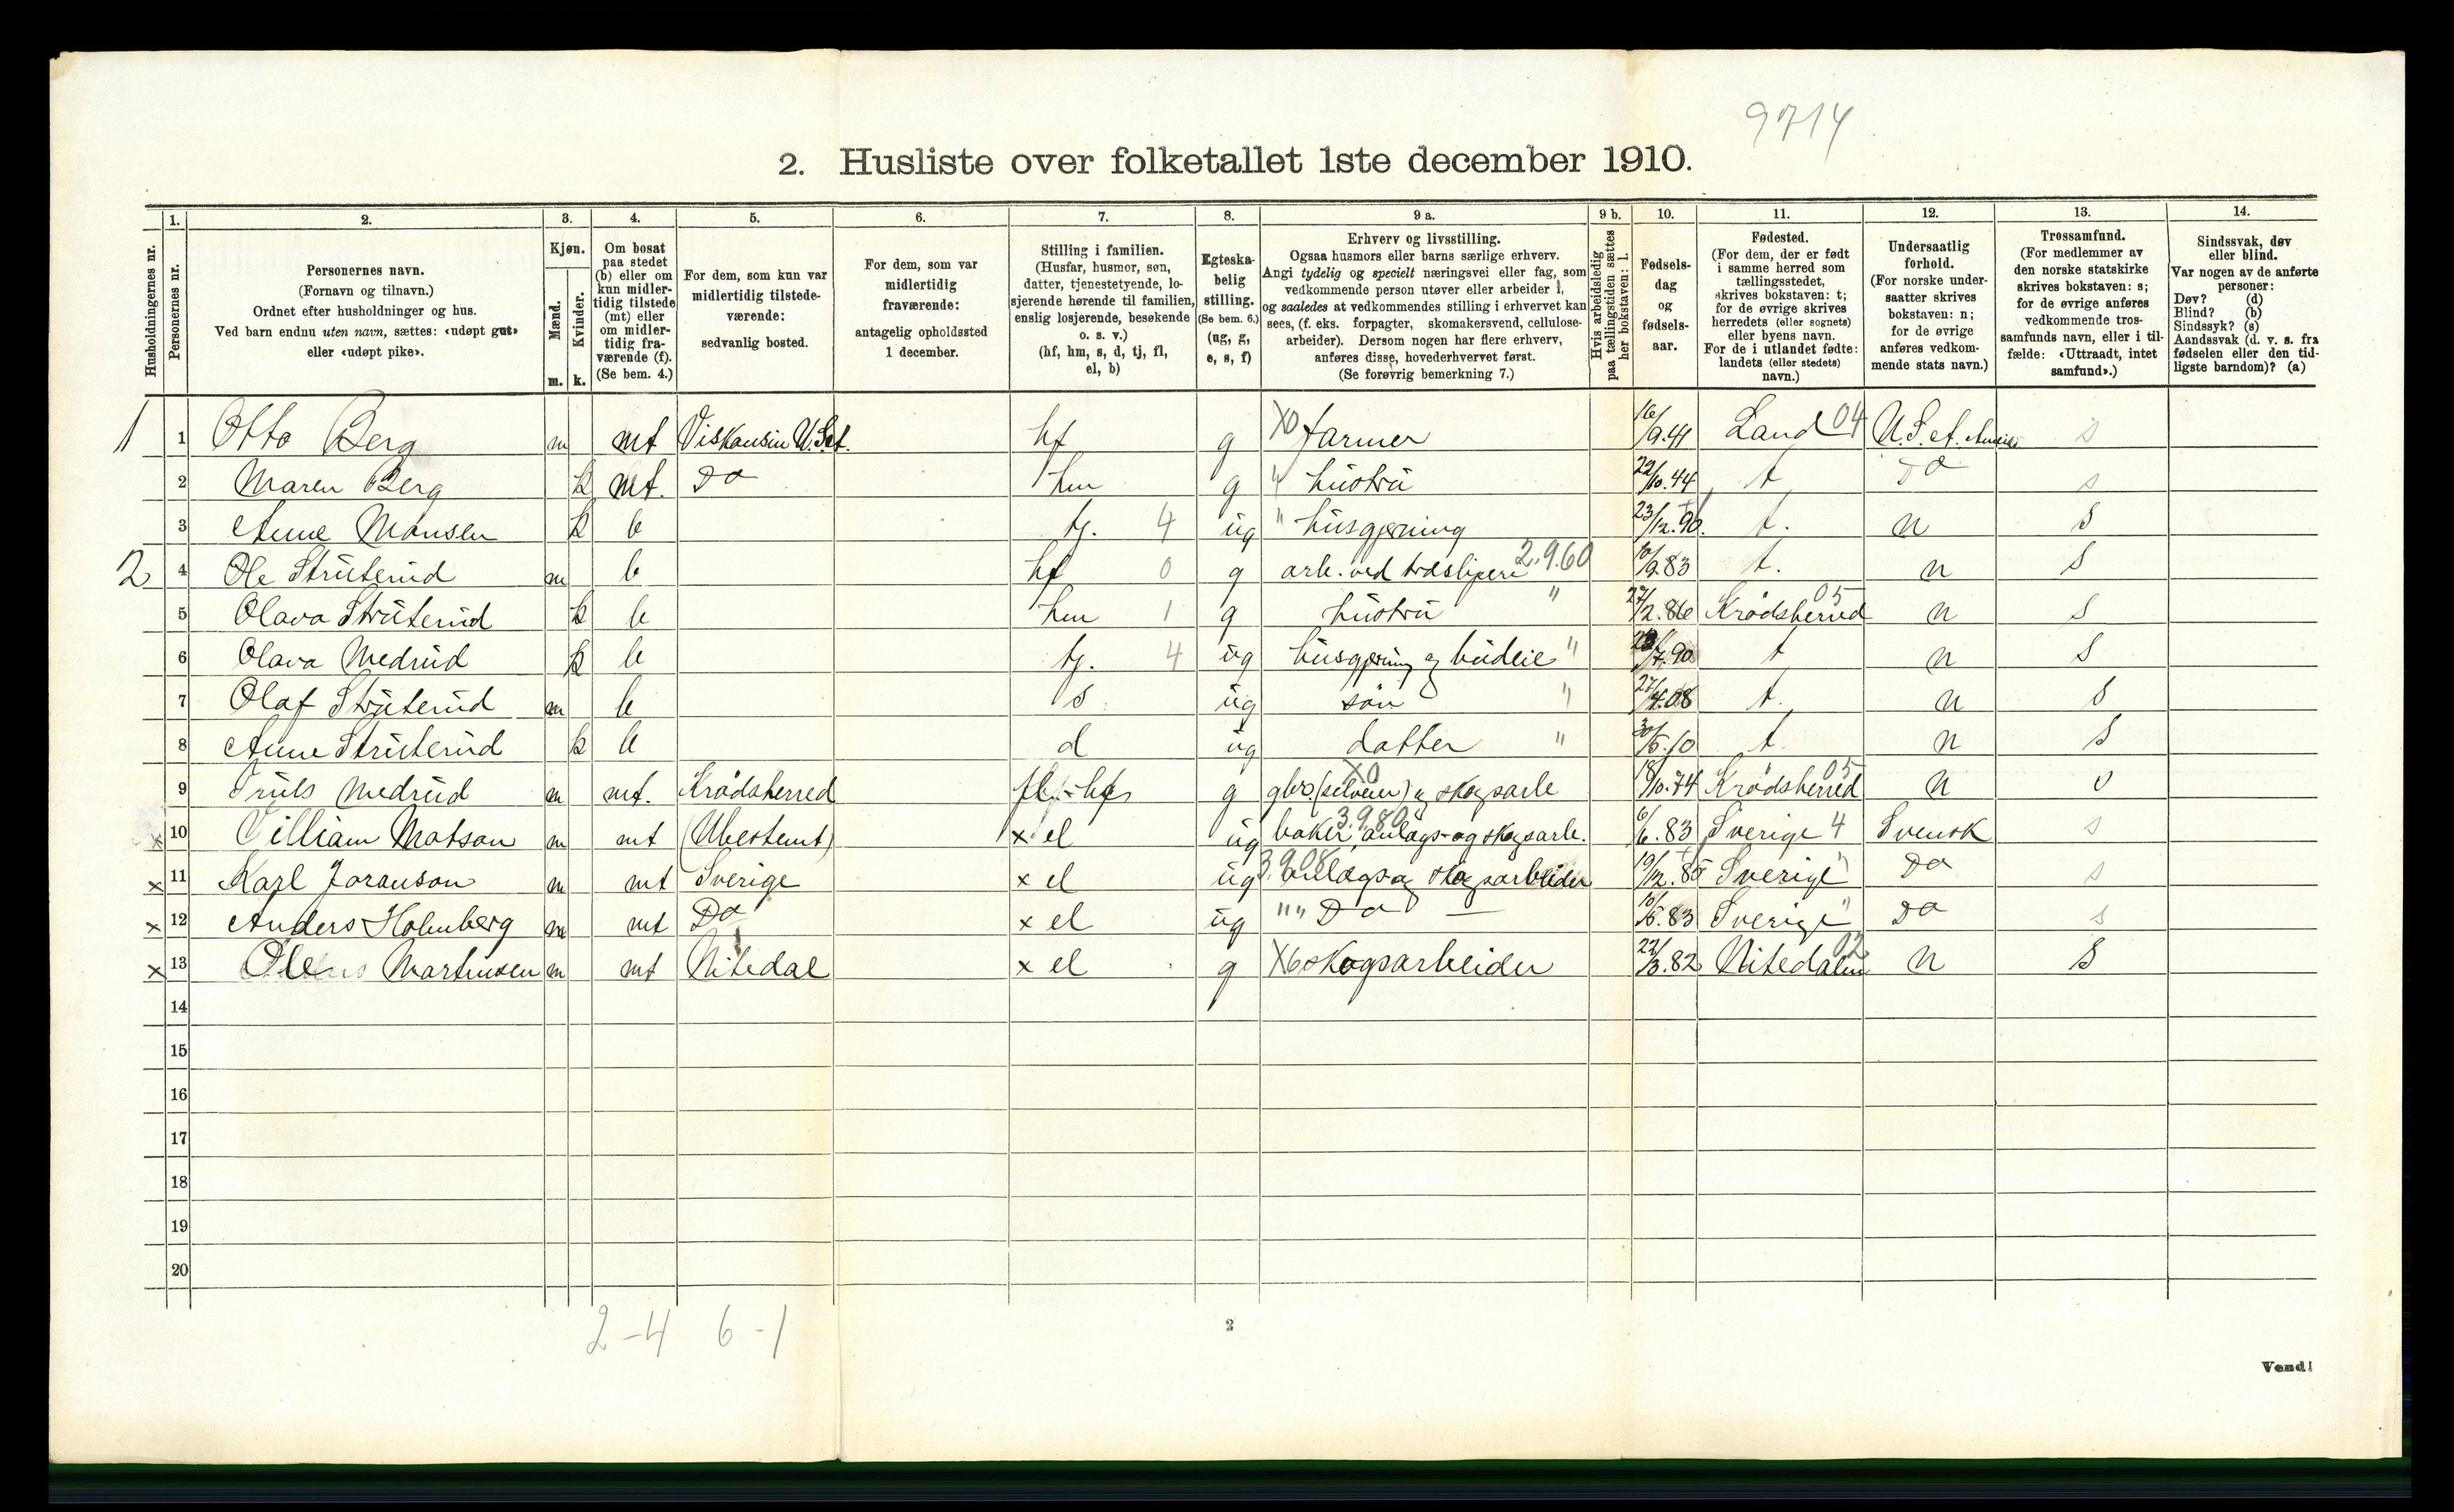 9714
2. Husliste over folketallet 1ste december 1910.
1. 2. 3. 4. 5. 6. 7. 8. 9 a. 9 b. 10. 11. 12. 13. 14.
Husholdningernes nr.
Personernes nr.
Personernes navn.
(Fornavn og tilnavn.)
Ordnet efter husholdninger og hus.
Ved barn endnu uten navn, sættes: «udøpt gut»
eller «udøpt pike».
Kjøn.
Mænd. Kvinder.
m. k.
Om bosat
paa stedet
(b) eller om
kun midler-
tidig tilstede
(mt) eller
om midler-
tidig fra-
værende (f).
(Se bem. 4.)
For dem, som kun var
midlertidig tilstede-
værende:
sedvanlig bosted.
For dem, som var
midlertidig
fraværende:
antagelig opholdssted
1 december.
Stilling i familien.
(Husfar, husmor, søn,
datter, tjenestetyende, lo-
sjerende hørende til familien,
enslig losjerende, besøkende
o. s. v.)
(hf, hm, s, d, tj, fl,
el, b)
Egteska-
belig
stilling.
(Se bem. 6.)
(ug, g,
e, s, f)
Erhverv og livsstilling.
Ogsaa husmors eller barns særlige erhverv.
Angi tydelig og specielt næringsvei eller fag, som
vedkommende person utøver eller arbeider i,
og saaledes at vedkommendes stilling i erhvervet kan
sees, (f. eks. forpagter, skomakersvend, cellulose-
arbeider). Dersom nogen har flere erhverv,
anføres disse, hovederhvervet først.
(Se forøvrig bemerkning 7.)
Hvis arbeidsledig
paa tællingstiden sættes
her bokstaven: l.
Fødsels-
dag
og
fødsels-
aar.
Fødested.
(For dem, der er født
i samme herred som
tællingsstedet,
skrives bokstaven: t;
for de øvrige skrives
herredets (eller sognets)
eller byens navn.
For de i utlandet fødte:
landets (eller stedets)
navn.)
Undersaatlig
forhold.
(For norske under-
saatter skrives
bokstaven: n;
for de øvrige
anføres vedkom-
mende stats navn.)
Trossamfund.
(For medlemmer av
den norske statskirke
skrives bokstaven: s;
for de øvrige anføres
vedkommende tros-
samfunds navn, eller i til-
fælde: «Uttraadt, intet
samfund».)
Sindssvak, døv
eller blind.
Var nogen av de anførte
personer:
Døv? (d)
Blind? (b)
Sindssyk? (s)
Aandssvak (d. v. s. fra
fødselen eller den tid-
ligste barndom)? (a)
1 1 Otto Berg m mt Viskonsin U.S.A. hf g X0 farmer 16/9.41 Land 04 U.S.A. s
2 Maren Berg k mt. Do hm g " hustru 22/10.44 t Do s
3 Anne Monsen k b tj. 4 ug " husgjerning 23/12.90. t. n S
2 4 Ole Struterud m b hf 0 g arb. ved træsliperi 2.9.60 10/9.83 t. n S
5 Olava Struterud k b hm 1 g hustru " 27/2.86 Krødsherred 05 n S
6 Olava Medrud k b tj. 4 ug husgjerning og budeie " /7.90 t n S
7 Olaf Struterud m b s ug søn " 27/4.08 t. n S
8 Anne Struterud k b d ug datter " 30/5.10 t. n S
9 Truls Medrud m mt. Krødsherred fl.-hf g gbr. (selveier) og skogsarb X0 18/10.74 Krødsherred 05 n
x 10 Villiam Matson m mt (Ubestemt) x el ug baker, anlægs- og skogsarb. 3.9.80 6/6.83 Sverige 4 Svensk s
x 11 Karl Joranson m mt Sverige x el ug 3.9.08 anlægs og skogsarbeider 19/12.85 Sverige " Do s
x 12 Anders Holmberg m mt Do x el ug "" Do — 10/5.83 Sverige " Do s
x 13 Ole Martinsen m mt Nitedal x el g X6 skogsarbeider 22/3.82 Nitedalen 02 n S
14
15
16
17
18
19
20
2-4 6-1
2
Vend!